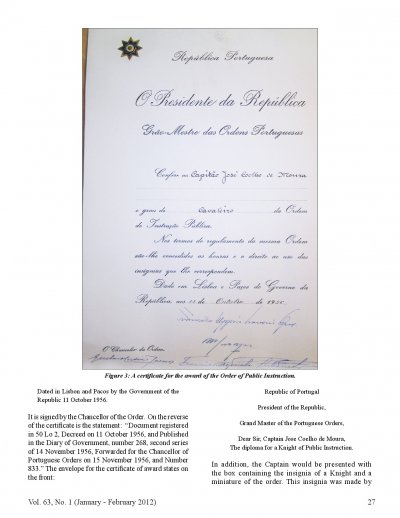 República Portuguesa
O Presidente da República
Grão-Mestre das Ordens Portuguesas
Confere ao Capitão José Coelho de Moura
o grau de Cavaleiro da Ordem
de Instrução Pública.
Nos termos do regulamento da mesma Ordem
são-lhe concedidas as honras e o direito ao uso das
insígnias que lhe correspondem.
Dado em Lisboa e Paços do Governo da
República, aos 11 de Outubro de 1956.
O Chanceler da Ordem
Figure 3: A certificate for the award of the Order of Public Instruction.
Dated in Lisbon and Pacos by the Government of the
Republic 11 October 1956.
It is signed by the Chancellor of the Order. On the reverse
of the certificate is the statement: “Document registered
in 50 Lo 2, Decreed on 11 October 1956, and Published
in the Diary of Government, number 268, second series
of 14 November 1956, Forwarded for the Chancellor of
Portuguese Orders on 15 November 1956, and Number
833.” The envelope for the certificate of award states on
the front:
Republic of Portugal
President of the Republic,
Grand Master of the Portuguese Orders,
Dear Sir, Captain Jose Coelho de Moura,
The diploma for a Knight of Public Instruction.
In addition, the Captain would be presented with
the box containing the insignia of a Knight and a
miniature of the order. This insignia was made by
Vol. 63, No. 1 (January - February 2012)
27